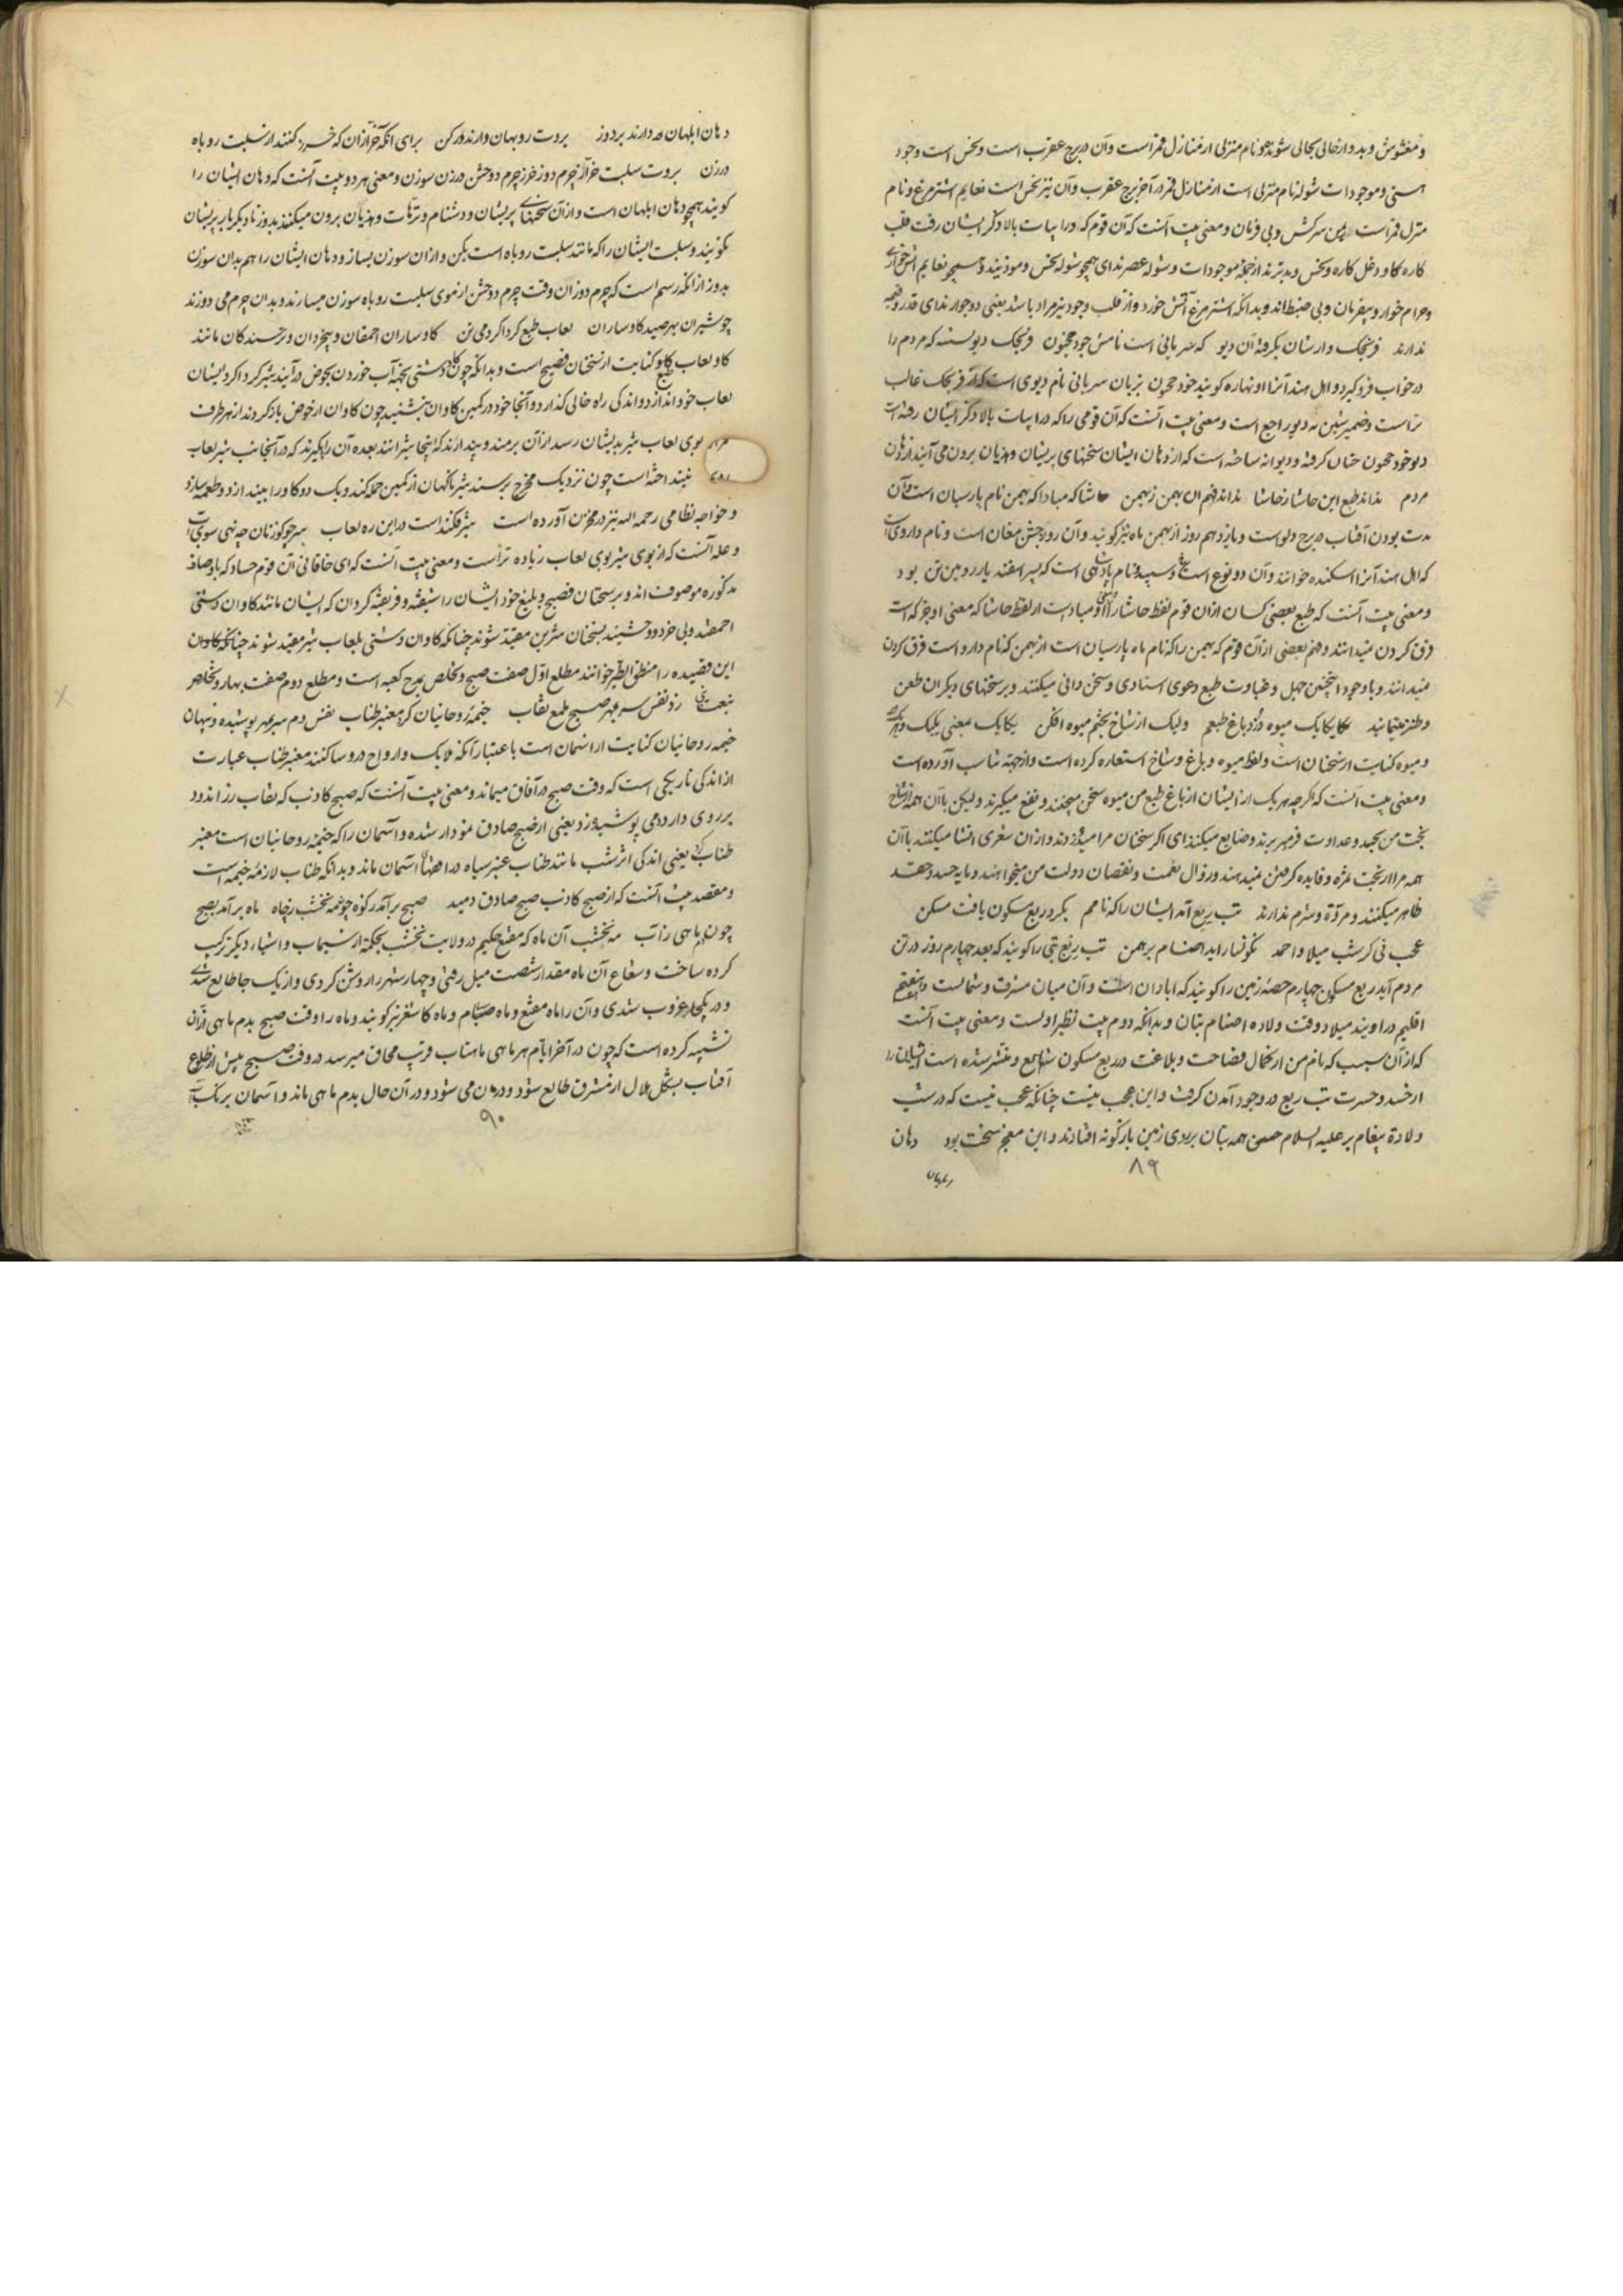 و مغشوش و بد و از حالی بحالی شونده و نام منزلی از منازل قمر است و آن در برج عقرب است و نحس است وجود
هستی و موجودات شوله نام منزلی است از منازل قمر در آخر برج عقرب و آن نیز نحس است نعایم اشتر مرغ و نام
منزل قمر است سرکش و بی فرمان و معنی بیت آنست که آن قوم که در ابیات بالا ذکر ایشان رفت قلب
کاره کار و دخل کاره و نحس و بدترند از جمله موجودات و شوله عصرند ای همچو شوله نحس و موذیند و همچو نعایم آتش خوار
و حرام خوار و بیفرمان و بی ضبط اند و بدانکه اشتر مرغ آتش خورد و از قلب وجود نیز مراد باشد یعنی دو جوار ندای قدر و قیمه
ندارند فرنجک وارشان بگرفته آن دیو که سریانی است نامش جود محنون فرنجک دیویست که مردم را
در خواب فرو گیرد و اهل هند آنرا اونهاره گویند خود محنون بزبان سریانی نام دیوی است که از فرنجک غالب
تر است و ضمیر شین به دیو راجع است و معنی بیت آنست که آن قومی را که در ابیات بالا ذکر ایشان رفته است
دیو خود محنون چنان گرفته و دیوانه ساخته است که از دهان ایشان سخنهای پریشان و هذیان برون می آیند از دهان
مردم نداند طبع این حاشا ز حاشا نداند فهم آن بهمن ز بهمن حاشا که مبادا که بهمن نام پارسیان است و آن
مدت بودن آفتاب در برج دلوست و یازدهم روز از بهمن ماه نیز گویند و آن روز جشن مغان است و نام داروی است
که اهل هند آنرا اسکنده خوانند و آن دو نوع است سرخ و سپید و نام پادشاهی است که پسر اسفندیار رویین تن بود
و معنی بیت آنست که طبع بعضی کسان ازان قوم لفظ حاشا را که مبادا است از لفظ حاشا که معنی او جز که است
فرق کردن نمیدانند و فهم بعضی از آن قوم که بهمن را که نام ماه پارسیان است از بهمن که نام دارو است فرق کردن
نمیدانند و با وجود اینچنین جهل و غباوت طبع دعوی استادی و سخن دانی میکنند و بر سخنهای دیگران طعن
و طنز مینمایند یکایک میوه دزد باغ طبعم ولیک از شاخ بختم میوه افکن یکایک بمعنی یک یک
و میوه کنایت از سخنان است و لفظ میوه و باغ و شاخ استعاره کرده است و از جهة تناسب آورده است
و معنی بیت آنست که اگرچه هر یک از ایشان از باغ طبع من میوه سخن میچنند و نفع میگیرند و لیکن با آن همه از شاخ
بخت من بحسد و عداوت فرمبر برند و ضایع میکنند ای اگر سخنان مرا میدزدند و ازان شعری انشا میکنند با آن
همه مرا از بخت ثمره و فایده گرفتن نمیدهند و زوال نعمت و نقصان دولت من میخواهند و مایه حسد و حقد
ظاهر میکنند و مروّة و شرم ندارند تب ربع آمد ایشان را که نامم بگرد ربع مسکون یافت مسکن
عجب نی گر شب میلاد احمد نگونسار اید اصنام برهمن تب ربع تبی را گویند که بعد چهارم روز در تن
مردم آید ربع مسکون چهارم حصه زمین را گویند که ابادان است و آن میان مشرق و شمالست و هفتم
اقلیم در اویند میلاد وقت ولاده اصنام بتان و بدانکه دوم بیت نظیر اولست و معنی بیت آنست
که از آن سبب که نام من از کمال فصاحت و بلاغت در ربع مسکون شایع و منتشر شده است ایشان را
از حسد و حسرت تب ربع در وجود آمدن گرفت و این عجب نیست چنانکه عجب نیست که در شب
ولادة پیغامبر علیه السلام همه بتان بر روی زمین بازگونه افتادند و این معجز سخت بود دهان
۸۹
دهان ابلهان دارند بردوز بروت روبهان دارند برکن برای آنکه خرّازان که خرّازی کنند از سبلت روباه
درزن بروت سبلت خرّاز چرم دوز خرز چرم دوختن درزن سوزن و معنی هر دو بیت آنست که دهان ایشان را
گویند همچو دهان ابلهان است و از آن سخنهای پریشان و دشنام و ترّهات و هذیان برون میکنند بدوز تا دیگر بار پریشان
نگویند و سبلت ایشان را که مانند سبلت روباه است بکن و ازان سوزن بساز و دهان ایشان را هم بدان سوزن
بدوز از انکه رسم است که چرم دوزان وقت چرم دوختن از موی سبلت روباه سوزن میسازند و بدان چرم می دوزند
چو شیران بهر صید گاوساران لعاب طبع گرداگرد می تن گاوساران احمقان و بیخردان و ترسندگان مانند
گاو لعاب گاو کنایت از سخنان فصیح است و بدانکه چون گاو دشتی بجهة آب خوردن بحوض درآیند شیر گرداگرد ایشان
لعاب خود اندازد و اندکی راه خالی گذارد و آنجا خود در کمین گاوان بنشیند چون گاوان از حوض بازگردند از هر طرف
بوی لعاب شیر بدیشان رسد از آن برمند و پندارند که اینجا شیرانند بعده آن راه گیرند که در آنجانب شیر لعاب
نینداخته است چون نزدیک مخرج برسند شیر ناگهان از کمین حمله کند و یک دو گاو را بیندازد و طعمه سازد
و خواجه نظامی رحمه الله نیز در مخزن آورده است شیر فکند است در این ره لعاب سر چو گوزنان چه نهی سوی آب
و علة آنست که از بوی شیر بوی لعاب زیاده تر است و معنی بیت آنست که ای خاقانی آن قوم حساد که باوصاف
مذکوره موصوف اند و بر سخنان فصیح و بلیغ خود ایشان را شیفته و فریفته گردان که ایشان مانند گاوان دشتی
احمقند و بی خرد و وحشیند بسخنان شیرین مقید شوند چنانکه گاوان دشتی بلعاب شیر مقید شوند
این قصیده را منطق الطیر خوانند مطلع اوّل صفت صبح و تخلص بمدح کعبه است و مطلع دوم صفت بهار و تخلص
بنعت زد نفس سر بمهر صبح ملمع نقاب خیمه روحانیان کرد معنبر طناب نفس دم سر بمهر پوشیده و پنهان
خیمه روحانیان کنایت از آسمان است باعتبار آنکه ملایک و ارواح درو ساکنند معنبر طناب عبارت
از اندکی تاریکی است که وقت صبح در آفاق میماند و معنی بیت آنست که صبح کاذب که نقاب زراندود
بر روی دارد دمی پوشیده زد یعنی از صبح صادق نمودار شده و آسمان را که خیمه روحانیان است معنبر
طناب کرد یعنی اندکی اثر شب مانند طناب عنبر سیاه در آسمان ماند و بدانکه طناب لازمه خیمه است
و مقصد بیت آنست که از صبح کاذب صبح صادق دمید صبح برآمد ز کوه چو مه نخشب ز چاه ماه برآمد بصبح
چون دم ماهی ز آب مه نخشب آن ماه که مقنع حکیم در ولایت نخشب بحکمة از سیماب و اشیاء دیگر ترکیب
کرده ساخت و شعاع آن ماه مقدار شصت میل رفتی و چهار شهر را روشن کردی و از یک جا طالع شدی
و در یکجا غروب شدی و آن را ماه مقنع و ماه صیام و ماه کاشغر نیز گویند و ماه را وقت صبح بدم ماهی ازان
تشبیه کرده است که چون در آخر ایام هر ماهی ماهتاب قریب محاق میرسد در وقت صبح پیش از طلوع
آفتاب بشکل هلال از مشرق طالع شود و در آن حال بدم ماهی ماند و آسمان برنگ آب
۹۰